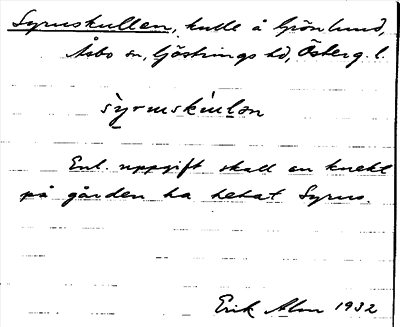 Syruskullen, kulle å Grönlund,
Åsbo sn, Göstrings hd, Österg. l.
syruskúlən
Enl. uppgift skall en knekt
på gården ha hetat Syrus.
Erik Alm 1932